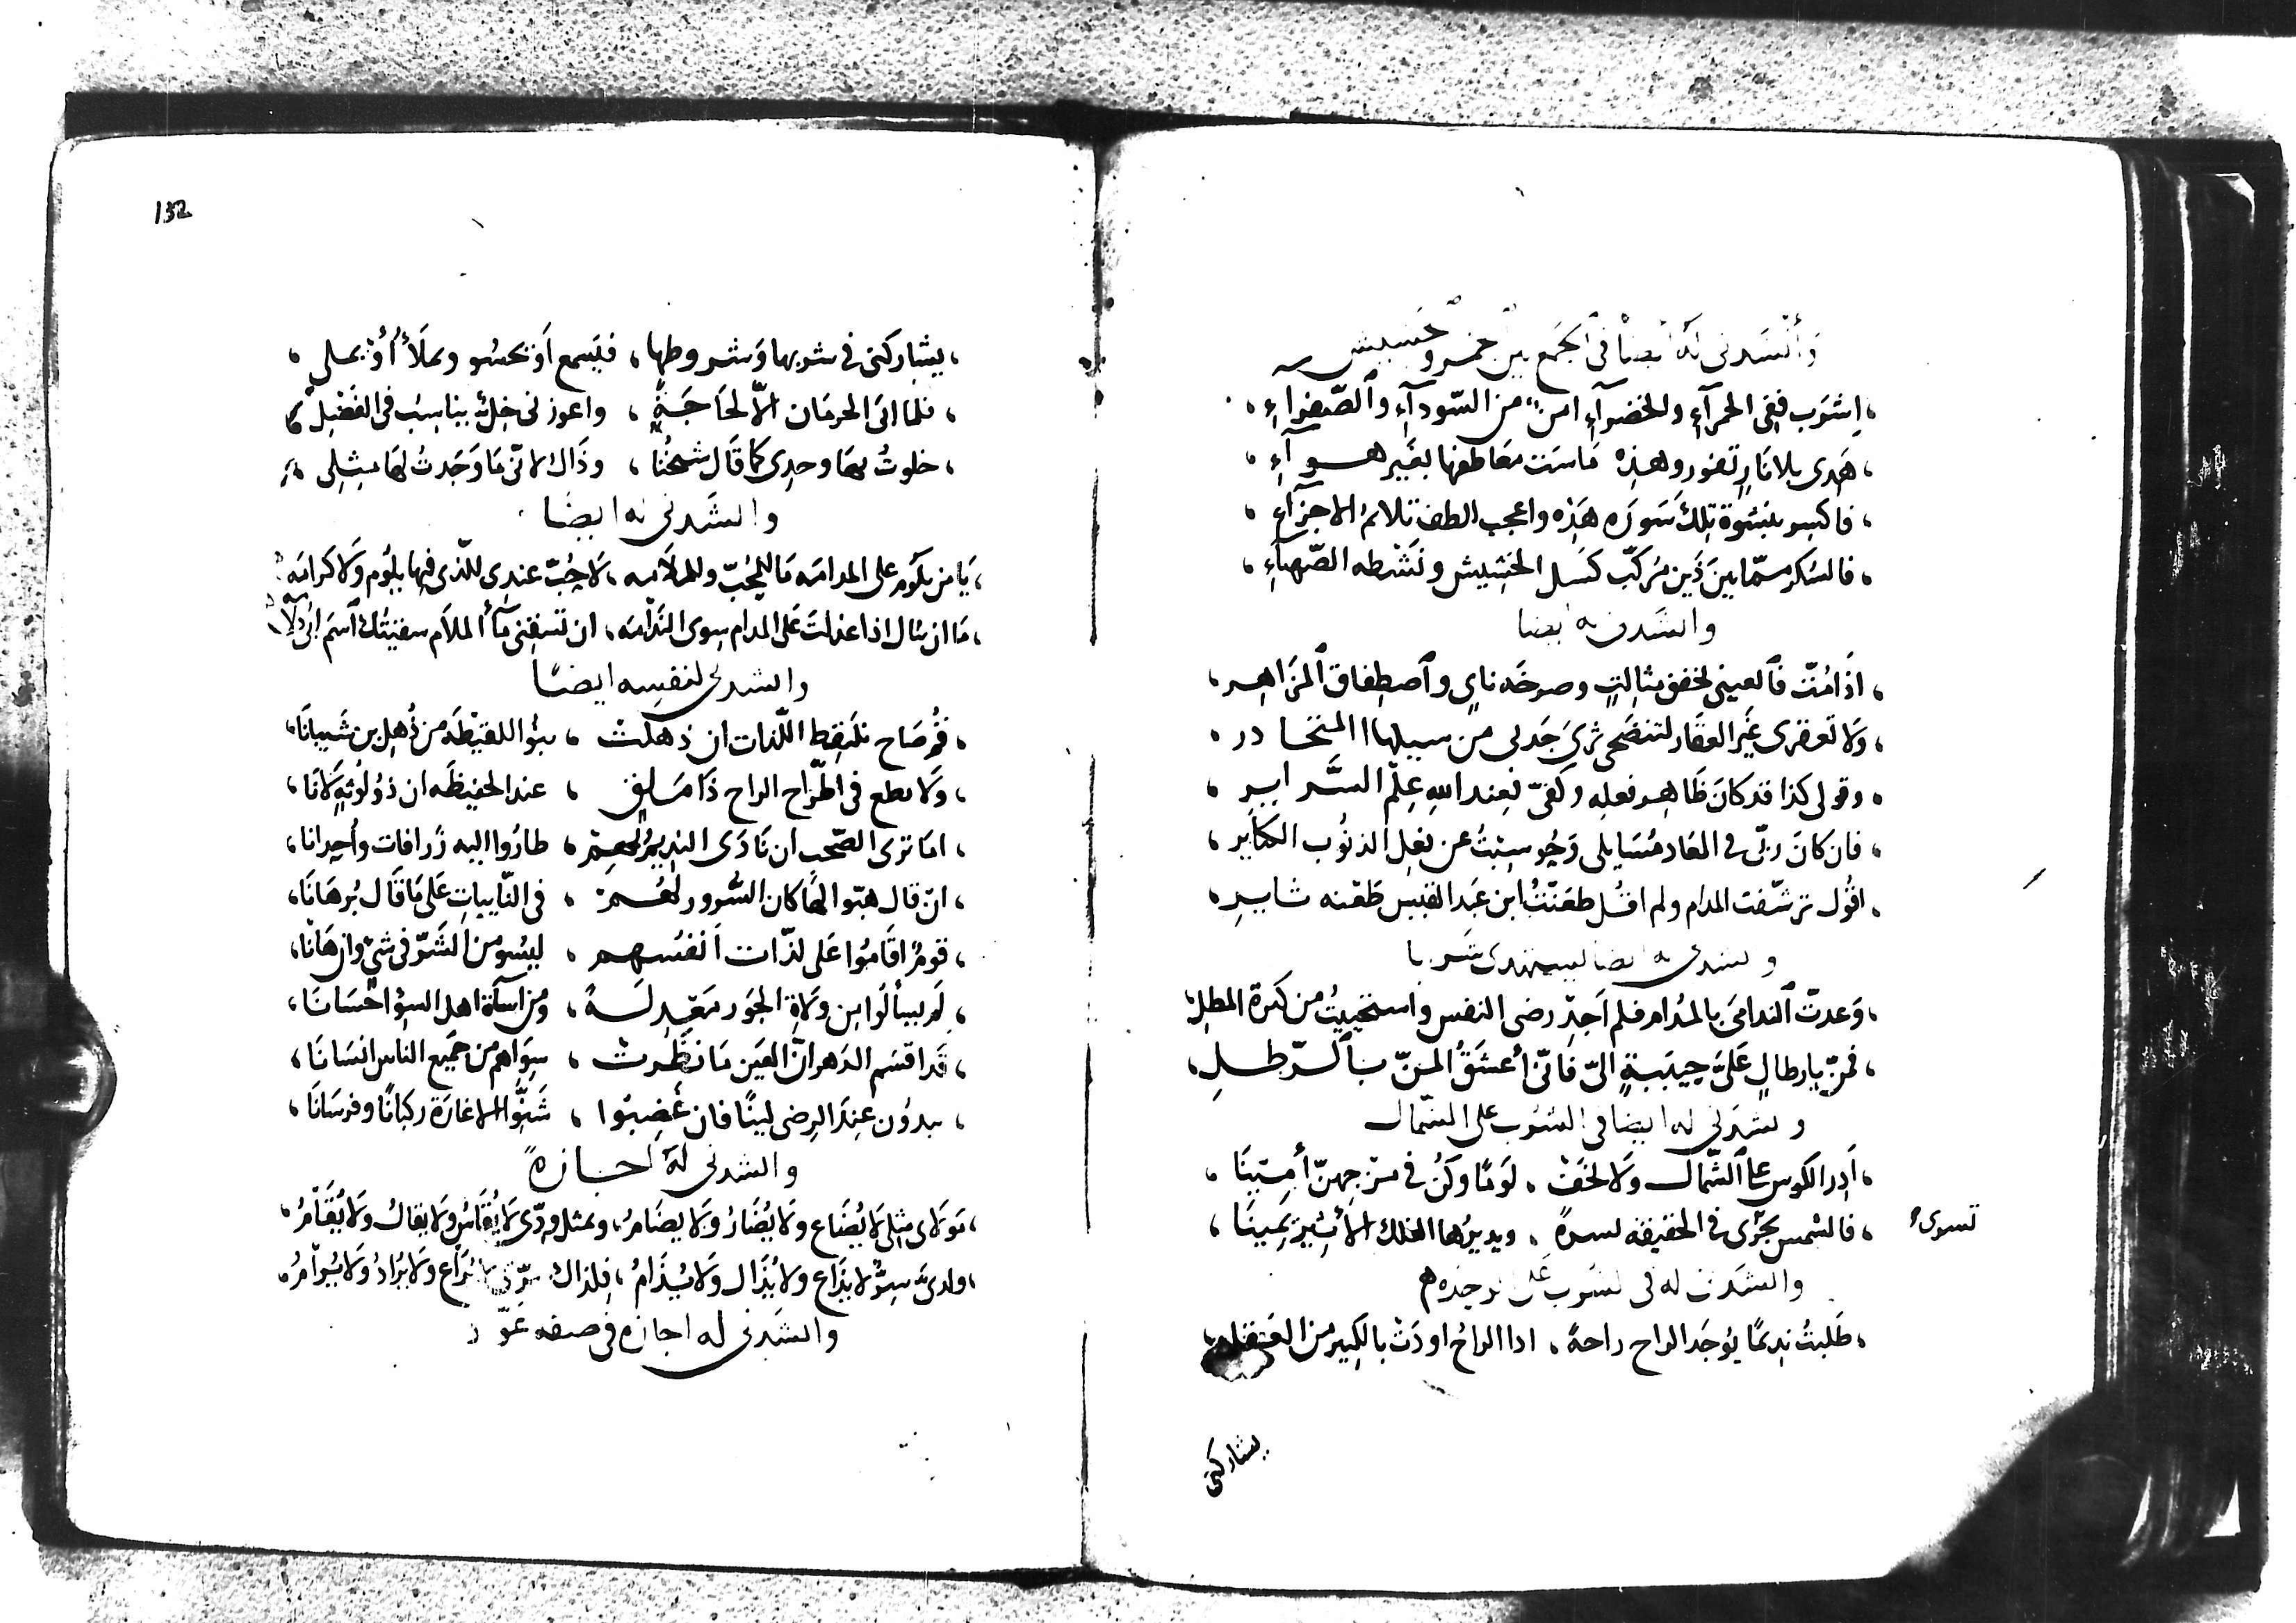 وأنشدني له أيضا في الجمع بين خمر وحشيش
، اِشرَب ففِى الحمرآءِ والخضرآءِ امنٌ من السّودآءِ والصّفرآءِ ،
، هَذى بلا نارٍ تفور وهذِه مَاسَت معَاطفها بغَير هــوآءِ ،
، فاكسر بنشوة تِلكَ سَورَه هَذِه واعجب الطف تلائم الاجزآءِ ،
، فالسُكر ممّا بينَ ذَين مُركّب كسَل الحَشِيش ونَشطه الصّهبآءِ ،
وانشدنى له ايضا
، اذَا مُتّ فالعينى لخفق مثالثٍ وصرخَه نايٍ وٱصطِفاق ٱلمزاهِـر ،
، وَلا تعقرى غَير العقَار لتنضحى ثرىَ جَدثى من سيبلها المتحـادر ،
، وقولى كذا قد كانَ ظَاهِـر فعلِه وكفىّ فعِند اللهِ عِلمُ السَّـرايـرِ ،
، فان كانَ ربّى فى المعَاد مُسَايلى وَحُوسِبتُ عن فعلِ الذنوُب الكبَاير ،
، اقوُل ترشّفت المدام ولم اقُـل طعَنتُ ابن عَبد القيس طعنَه ثـايـرِ ،
وانشدنى له ايضا ليستهدى شرابا
، وَعدتّ ٱلندامىَ بالمُدام فلم اَجدّ رضى النفس واستحييتُ من كثرة المطلِ
، فمُنّ بارطالٍ عَلىَّ حبيبةٍ الىّ فانّى أعشَقُ المنّ بٱلـرّطـلِ ،
وانشدنى له ايضا فى الشرب على الشمال
، اَدِر الكوس على الشّمال وَلا تخَفْ ، لَومًا وكُن فى مزجِهنّ أمِينَا ،
، فالشمس تجرى فى الحقيقه يسرةً ، ويديرُها الفلك الأثير يَمينَا ،
تسرىء
وانشدنى له فى الشرب على الوحده
، طَلبتُ نديمًا يوُجَد الراح راحةً ، اذا الراحُ اودَتْ بالكبير من العقل
يشاركنى
132
، يشاركنى فى شربها وَشروطها ، فيَسمع اَو يحسُو ويملَأُ أوْ يملى ،
، فلما ابى الحرمان الّا لحَاجَةٍ ، واعوزنى خِلٌ يناسِبُ فى الفَضْلِ
، خلوتُ بهَا وحدِى كما قَال شيخُنا ، وذَاك لانّى مَا وَجَدتُ لهَا مِثلِى
وانشدنى له ايضًا
، يَا من يلوُم على المدامَه مَا للمُحُبّ وللملَامه ، لَا حُبّ عندِى للّذى فيها يلوُم وَلا كرامَه
، مَا ان يَنال اذا عذلتَ عَلى المدام سِوى النَدامَه ، ان تسقنى مآ الملَام سقيتك
وانشدنى لنفسِه ايضًا
، قُم صَاح نلتَقِط اللّذات ان ذهلتْ ، بنوُ اللقيطَة من ذُهل بن شَيبانَا ،
، وَلَا تطع فى اطّراح الراح ذَا مَلقٍ ، عند الحفيظَه ان ذوُ لوُثةٍ لَانَا ،
، امَا ترى الصّحب ان نَادَى النديمُ بهِمْ ، طارُوا اليه زَرافات وأُحدانا ،
، انْ قال هبّوا لمَا كان السُّرور لهُـمْ ، فى النّايباتِ عَلى مَا قَال بُرهَانَا ،
، قومٌ اقَامُوا عَلى لذّات اَنفسِهـم ، ليسُو من الشَرّ فى شىْ وان هَانَا ،
، لَم يسألوُا من ولَاةِ الجَور مَعَدِلَـةً ، ومن اسآة اهل السوٍ احْسَانَا ،
، قَد اقسَم الدَهر انّ العَين مَا نظَرتْ ، سِوَاهم من جَميع الناس انسَانَا ،
، يبدوُن عِندَ الرضى لينًا فان غَضِبوا ، شَنُّوا الاغارَة ركبانًا وفرسَانَا ،
وانشدنى له اجازةً
، مَولاى مِثلى لَا يُضَاع ولَا يُضَارُ ولَا يضَامرُ ، وبمثل ودّى لَا يُقَاسُ وَلا يقالُ ولَا يُقَامرُ ،
، ولدىَّ سِرٌّ لا يذَاع ولَا يُذَال وَلا يُذَامُ ، فلذاك سِرّى لا يُرَاع ولَا يُرَادُ وَلَا يُرامرُ ،
وانشدنى له اجازه فى صفه عوّاد